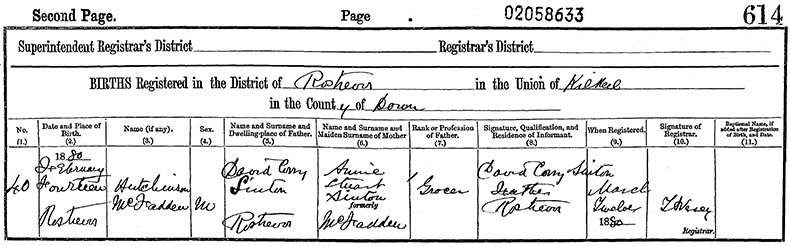 Second Page. Page . 02058633 614
Superintendent Registrar's District Registrar's District
BIRTHS Registered in the District of Rostrevor in the Union of Kilkeel
in the County of Down
No. (1.)
Date and Place of Birth. (2.)
Name (if any). (3.)
Sex. (4.)
Name and Surname and Dwelling-place of Father. (5.)
Name and Surname and Maiden Surname of Mother (6.)
Rank or Profession of Father. (7.)
Signature, Qualification, and Residence of Informant. (8.)
When Registered. (9.)
Signature of Registrar. (10.)
Baptismal Name, if added after Registration of Birth, and Date. (11.)
40
1880
February
Fourteen
Rostrevor
Hutchinson
McFadden
M
David Corry
Sinton
Rostrevor
Annie
Stuart
Sinton
formerly
McFadden
Grocer
David Corry Sinton
Father
Rostrevor
March
Twelve
1880
Registrar.